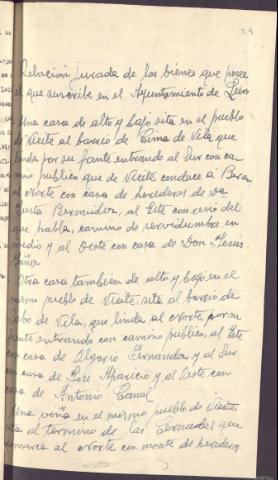 24
Relación jurada de los bienes que posee
el que suscribe en el Ayuntamiento de Leiro
Una casa de alto y bajo sita en el pueblo
de Vieite al barrio de Cima de Vila que
linda por su frente entrando al Sur con ca
mino publico que de Vieite conduce a
al Norte con casa de herederos de Da
Justa Bermudez, al Este con resio del
que habla, camino de servidumbre en
medio y al Oeste con casa de Don Jesús
Otra casa también de alto y bajo en el
mismo pueblo de Vieite, sita al barrio de
Cabo de Vila, que linda al Norte por su
frente entrando con camino publico, al Este
con casa de Olgario Fernandez y al Sur
con casa de José Aparicio y al Oeste con
casa de Antonio Canal
Una viña en el mismo pueblo de Vieite
sita al termino de las que
demarca al Norte con monte de herederos